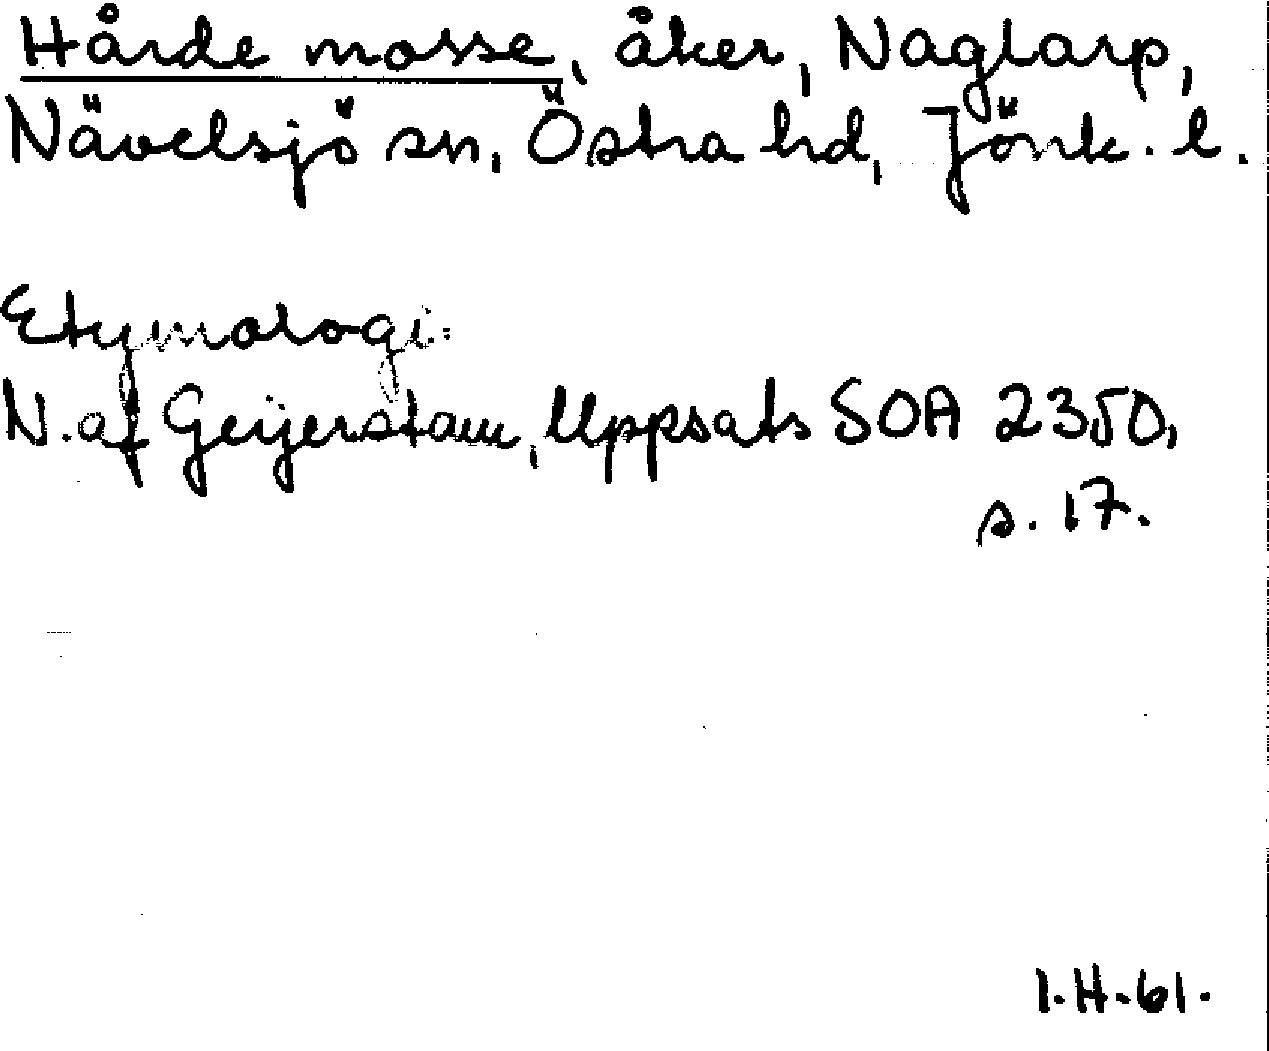 Hårde mosse, åker, Naglarp,
Nävelsjö sn, Östra hd, Jönk. l.
Etymologi:
N. af Geijerstam, Uppsats SOA 2350,
s. 17.
I.H.61.